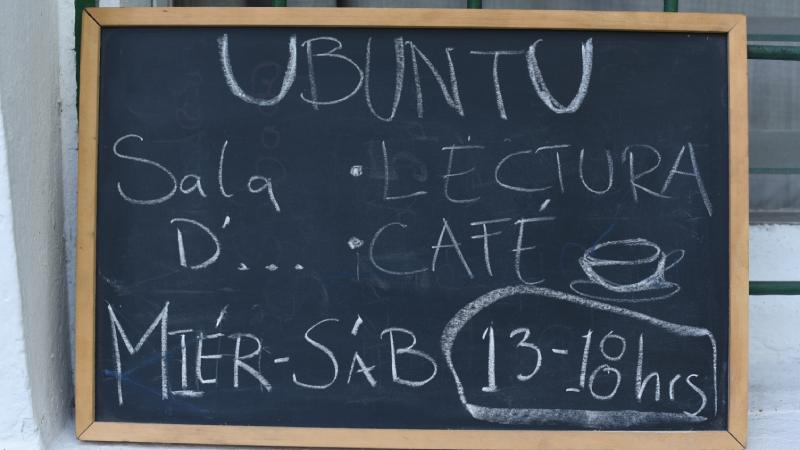 UBUNTU
Sala • LECTURA
D'... • CAFÉ
MIÉR-SÁB 13-18 hrs